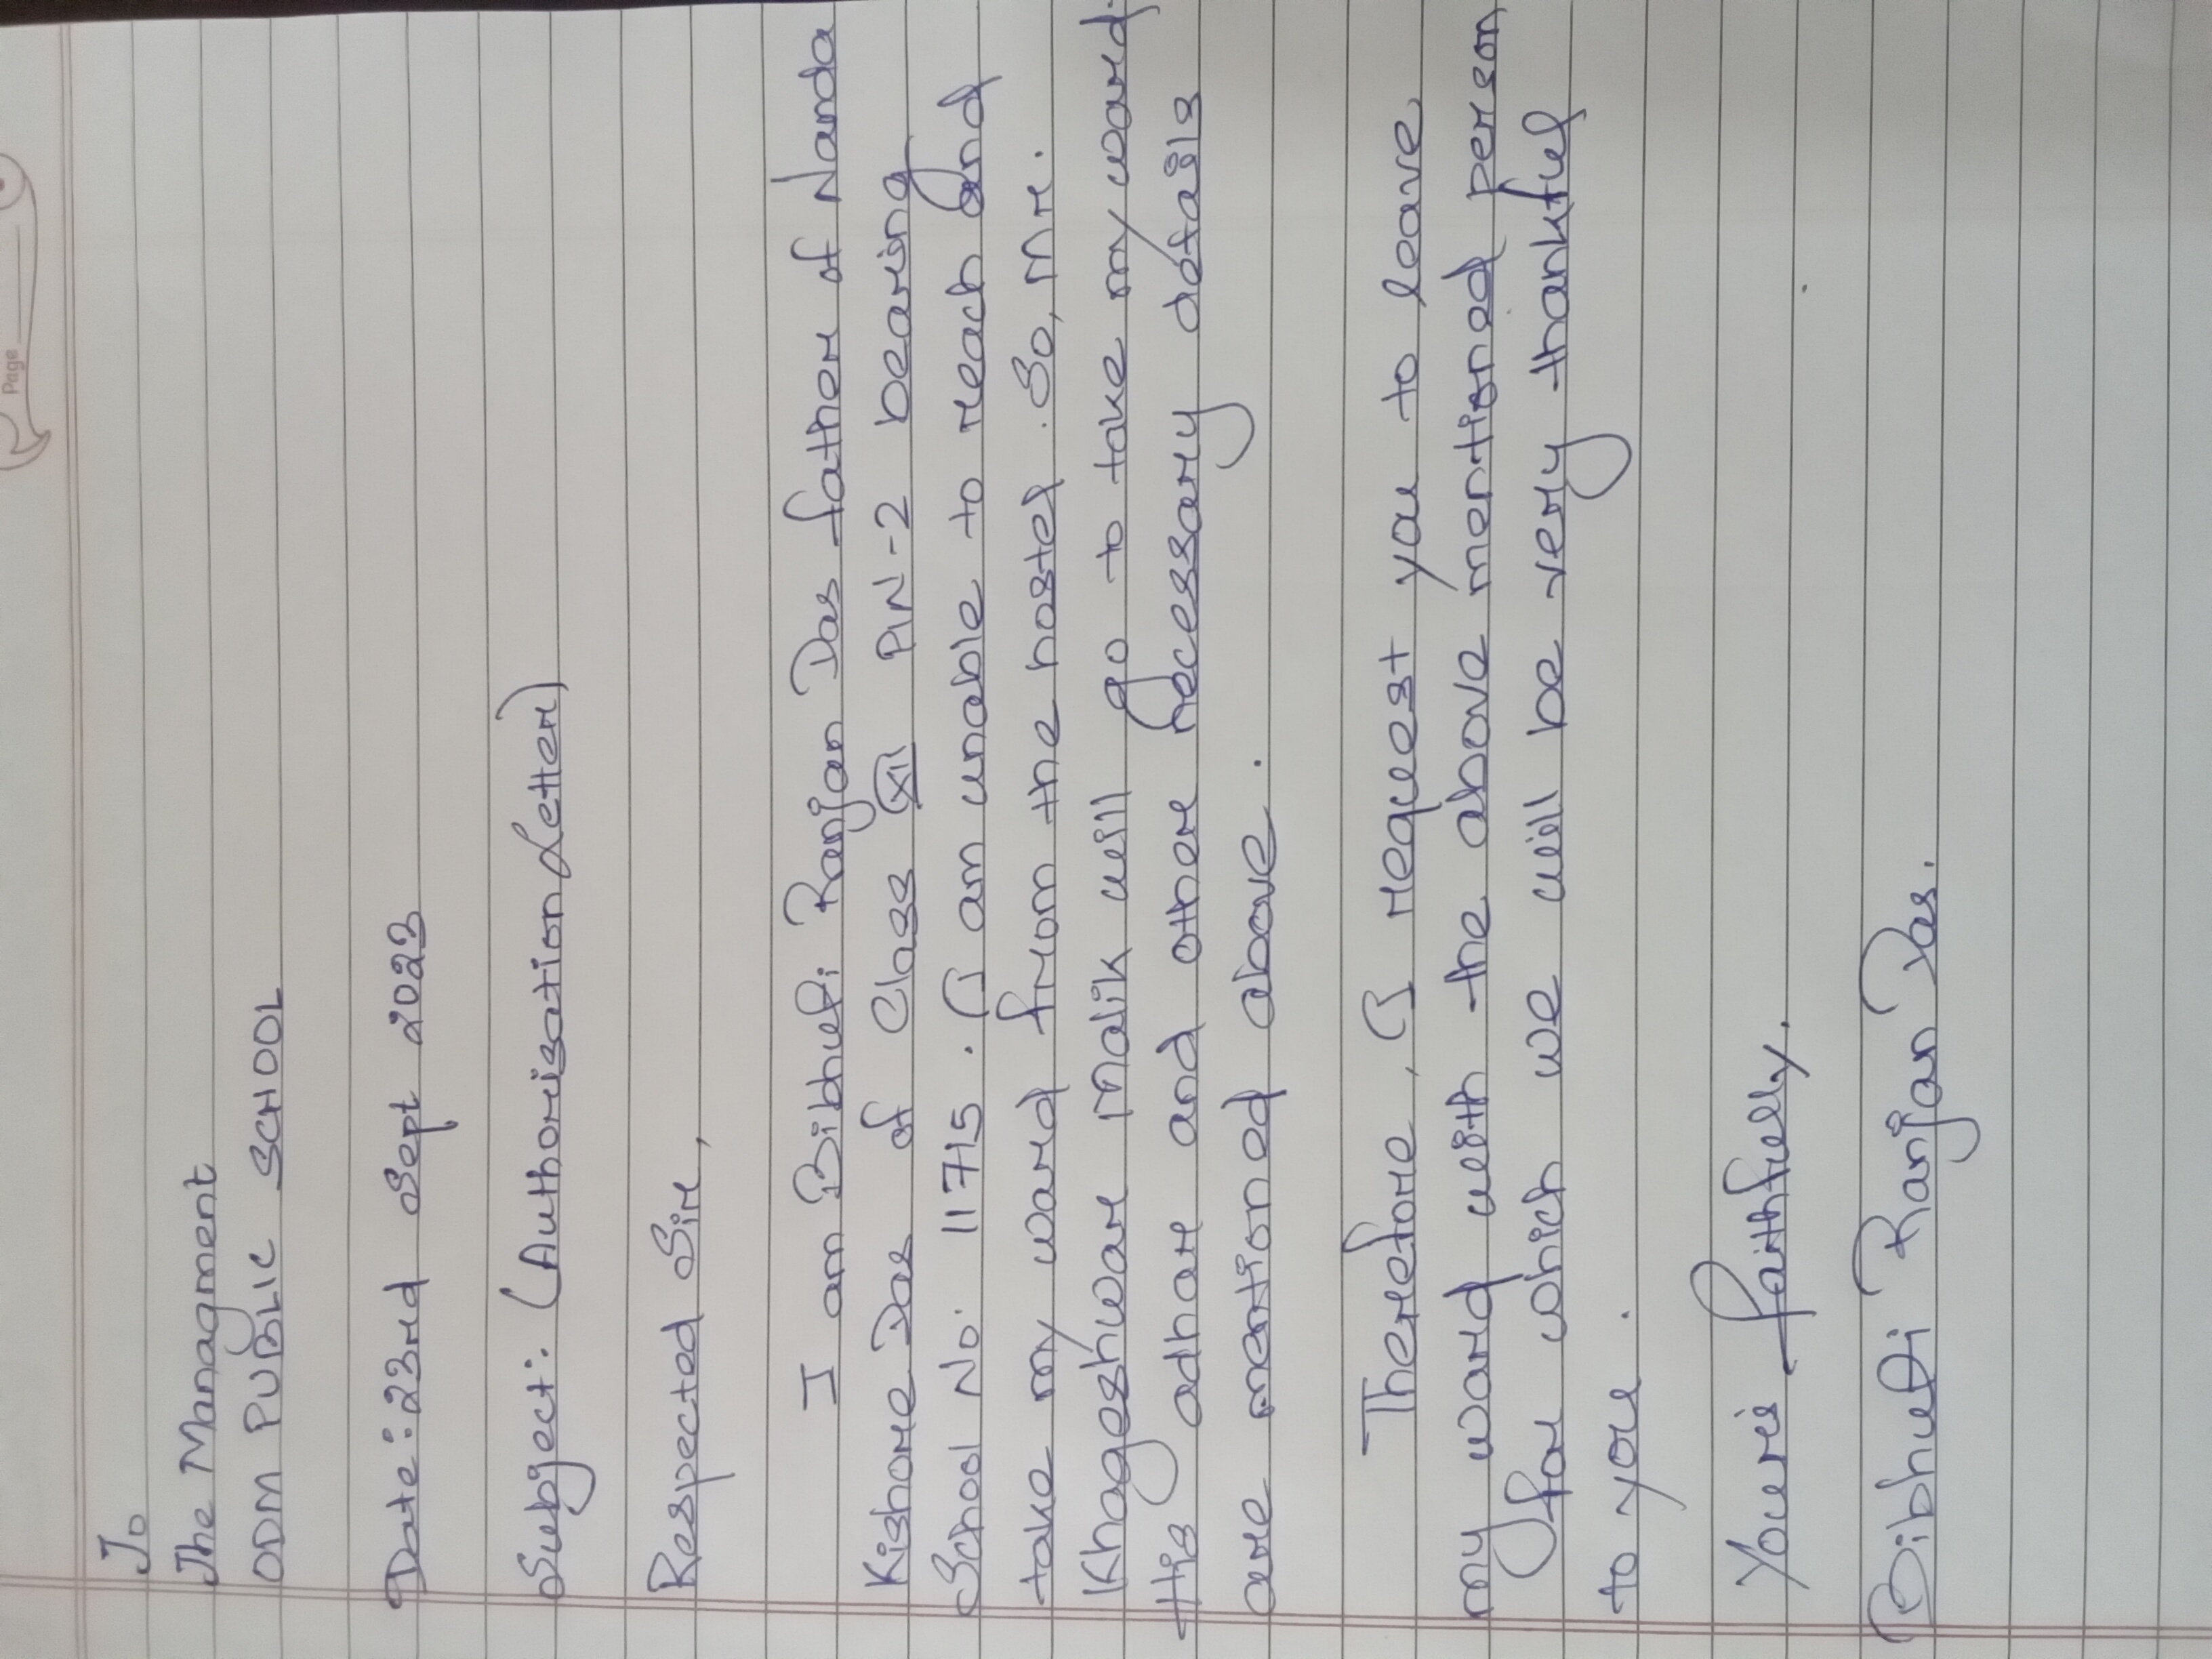 Page
To
The Managment
ODM PUBLIC SCHOOL
Date: 23rd Sept 2023
Subject: (Authorisation Letter)
Respected Sir,
I am Bibhuti Ranjan Das father of Nanda
Kishore Das of Class XII PIN-2 bearing
School No: 11715. I am unable to reach and
take my ward from the hostel. So, Mr.
Khageshwar Malik will go to take my ward.
His adhar and other necessary details
are mentioned above.
Therefore, I request you to leave
my ward with the above mentioned person
for which we will be very thankful
to you.
Your's faithfully,
Bibhuti Ranjan Das.